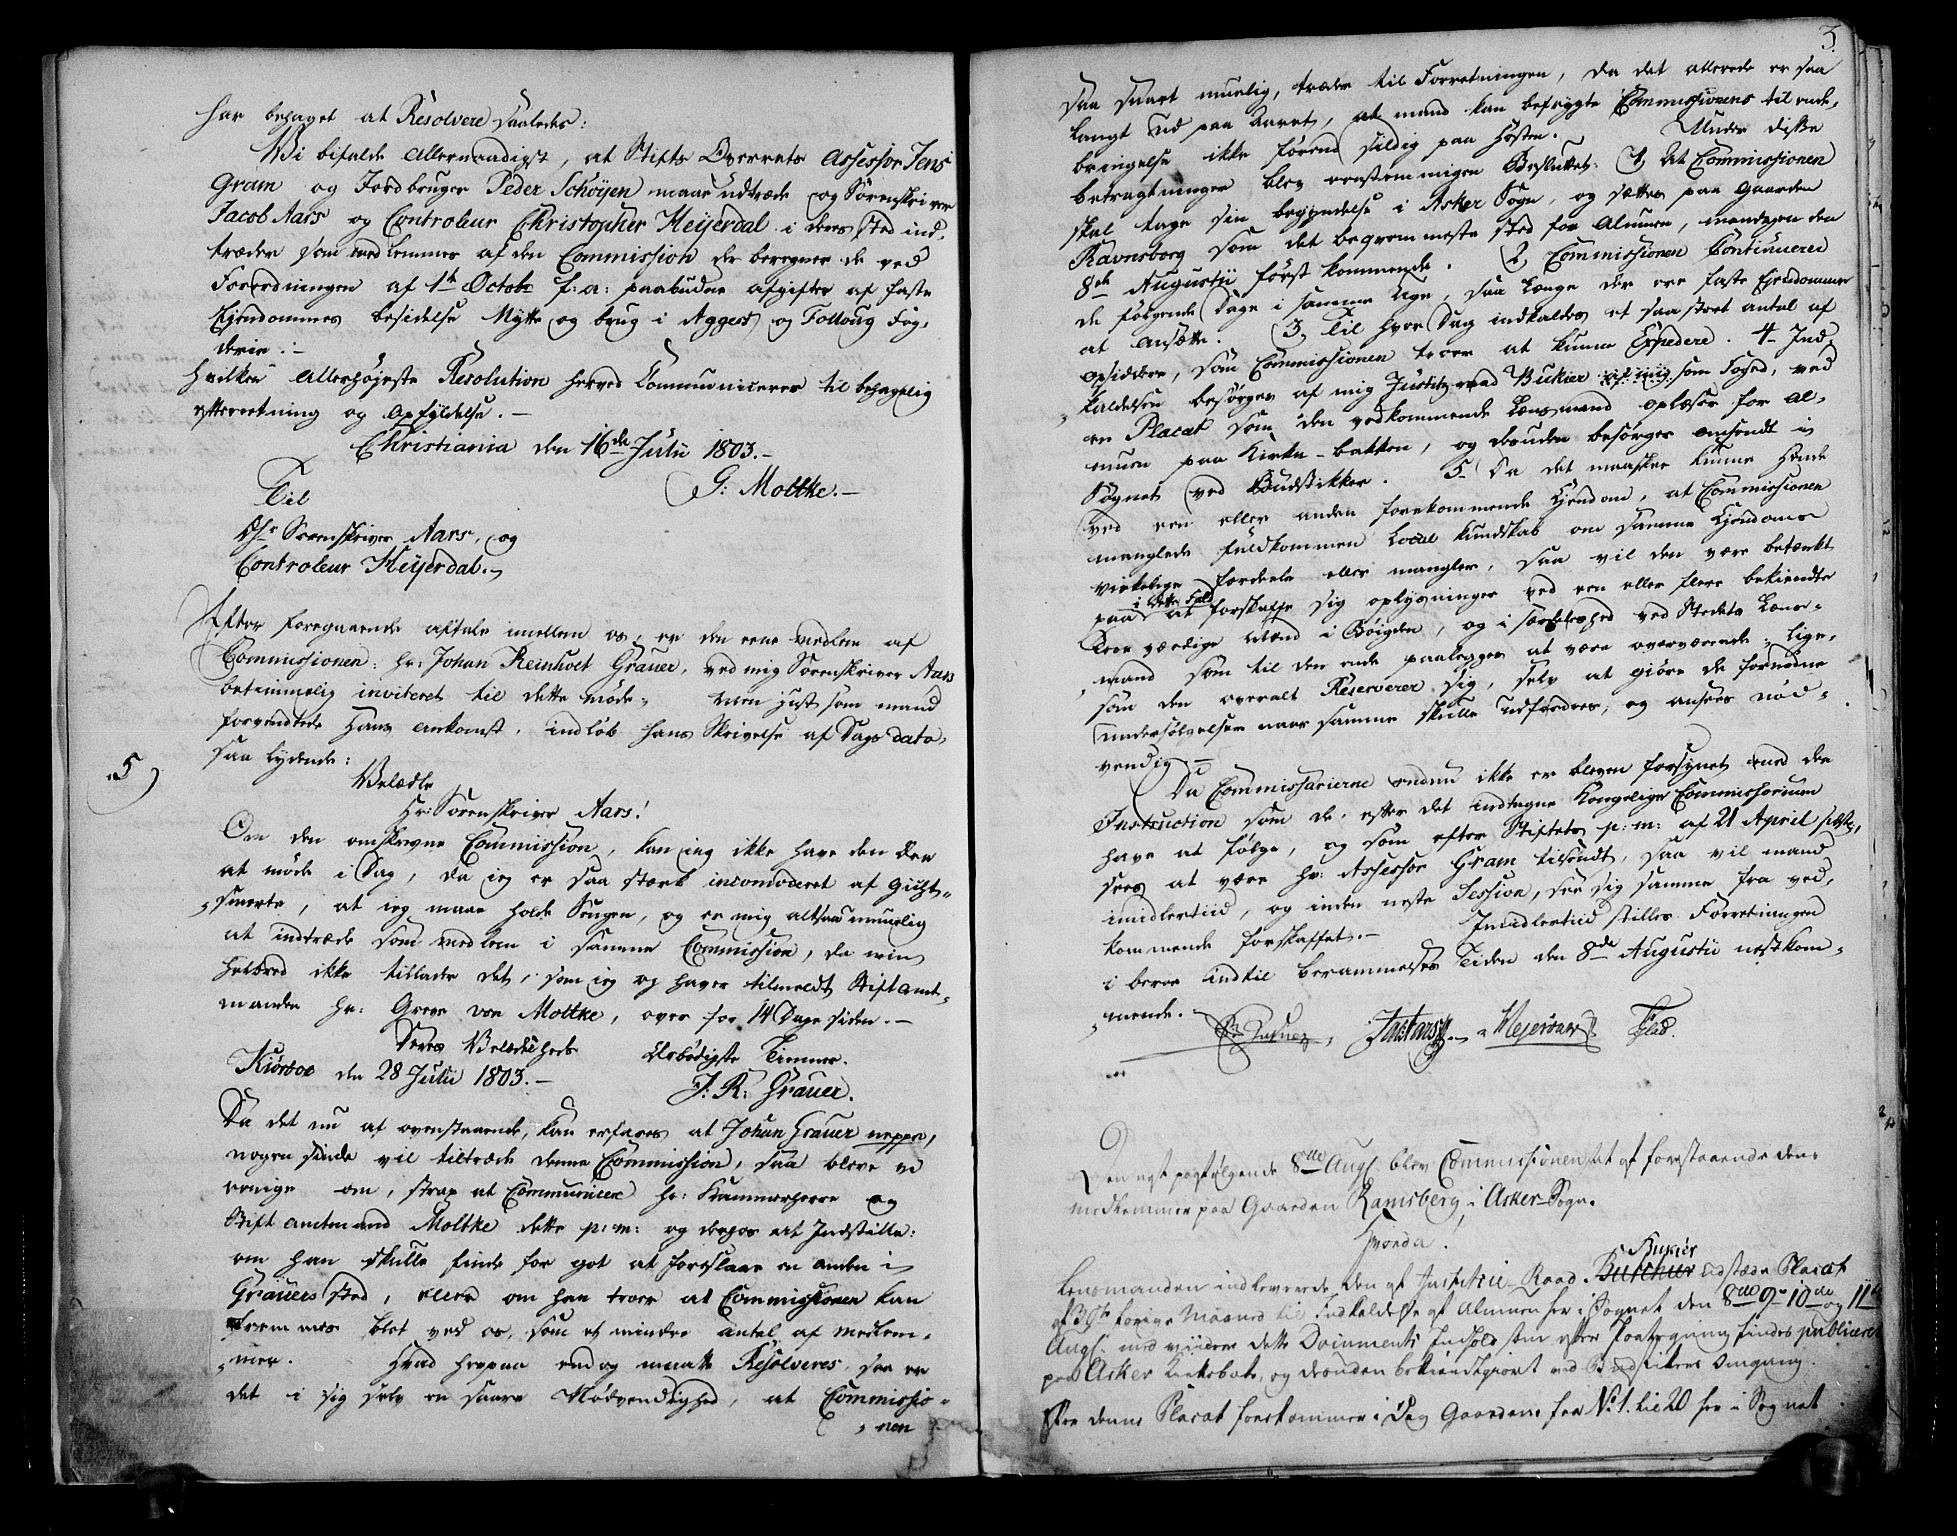 har behaget at Resolvere saaledes:
Vi bifalde Allernaadigst, at Stifts Overrets Assessor Jens
Gram og Jordbruger Peder Schöyen maae udtræde og Sorenskriver
Jacob Aars og Controleur Christopher Heijerdal i deres Sted ind-
træde som medlemmer af den Commission der beregner de ved
Forordningen af 1te Octobr f: a: paabudne afgifter af faste
Ejendommes besidelse Nytte og brug i Aggers og Folloug Fog-
derie.-
Hvilken Allerhøjeste Resolution herved Communiceres til behagelig
efterretning og Opfyldelse. -
Christiania den 16de Julii 1803.-
G: Moltke.-
Til
Hr Sorenskriver Aars, og
Controleur Heijerdal.
Efter foregaaende aftale imellem os, er den eene medlem af
Commissionen: hr: Johan Reinholt Grauer, ved mig Sorenskriver Aars
betimmelig inviteret til dette møde; men just som mand
forventede Hans ankomst, indløb hans Skrivelse af Dags dato,
saa lydende:
5)
Velædle
Hr: Sorenskriver Aars!
Om den omskrevne Commission, kan jeg ikke have den Ære
at møde i Dag, da jeg er saa stærk incomoderet af Gigt-
smerte, at jeg maae holde Sengen, og er mig altsaa umuelig
at indtræde som medlem i samme Commission, da min
Helbred ikke tillader det, som jeg og haver tilmeldt Stiftamt-
manden hr: Greve von Moltke, over for 14 Dage siden. -
Deres Velædelheds Ærbødigste Tienner.
Kiørboe den 28 Julii 1803.-
J: R: Grauer.
Da det nu af ovenstaaende, kan erfares at Johan Grauer neppe,
nogen sinde vil tiltræde denne Commission, saa bleve vi
eenige om, strax at Communicere hr: Kammerherre og
Stiftamtmand Moltke dette p: m: og derhos at Indstille:
om han skulle finde for got at foreslaae en anden i
Grauers sted, eller om han troer at Commissionen kan
fremmes blot ved os, som et mindre antal af medlem-
mer. Hvad herpaa end og maatte Resolveres, saa er
det i sig selv en saare Nødvendighed, at Commissio-
nen
3.
saa snart muelig, træder til Forretningen, da det allerede er saa
langt ud paa Aaret, at mand kan befrygte Commissionens tilende-
bringelse ikke førend sildig paa Høsten. Under disse
betragtninger blev eenstemmigen Besluttet: 1, At Commissionen
skal tage sin begyndelse i Asker Sogn, og sættes paa Gaarden
Ravnsborg som det beqvemmeste sted for Almuen, mandagen den
8de Augustii først kommende. 2, Commissionen Continuerer
de følgende Dage i samme Uge, saa længe der ere faste Ejendomme
at ansætte. 3, Til hver Dag indkaldes et saa stort antal af
opsiddere, som Commissionen troer at kunne Expedere. 4- Ind-
kaldelsen besørges af mig Justitzraad Bukier af mig som Foged, ved
en Placat som den vedkommende Lensmand oplæser for Al-
muen paa Kirke-bakken, og desuden besørges omsendt i
Sognet ved Budstikker. 5- Da det maaskee kunne hænde
ved een eller anden forekommende Ejendom, at Commissionen
manglede fuldkommen Local kundskab om samme Ejendoms
virkelige fordeele eller mangler, saa vil den være betænkt
paa i dette Fald at forskaffe sig oplysninger ved een eller flere bekiendte
troeværdige Mænd i Bøigden, og i særdeleshed ved Stedets Læns-
mand som til den ende paalegges at være overværende: lige-
som den overalt Reserverer sig, selv at giøre de fornødne
undersøgelser naar samme skulle udfordres, og ansees nød-
vendig.-
Da Commissarierne endnu ikke er bleven forsynet med den
Instruction som de, efter det indtagne Kongelige Commissorium
have at følge, og som efter Stiftets p: m: af 21 April sidst,
sees at være hr: Assessor Gram tilsendt, saa vil mand
imidlertiid, og inden neste Session, see sig samme fra ved-
kommende forskaffet.- Imidlertiid stilles Forretningen
i beroe indtil berammelses Tiden den 8de Augustii nestkom-
mende.-
Jac Aars Heyerdahl
Den nest paafølgende 8de Augs: blev Commissionen sat af forestaaende dens
medlemmer paa Gaarden Ramsberg i Asker Sogn.
Hvorda:
Lensmanden indleverede den af Justitie-Raad Burchier Bukier udstædte Placat
af 13de forige Maaned til Indkaldelse af Almuen her i Sognet den 8de 9de 10de og 11te
Augs: med viidere dette Documents Indhold som efter Paategning findes publiceret
paa Asker Kirkebake, og desuden bekiendtgiort ved Budstikens Omgang.
Efter denne Placat forekommer i Dag Gaardene fra No 1. til 20 her i Sognet